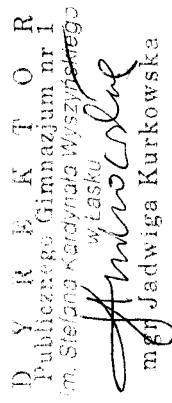 D Y R E K T O R
Publicznego Gimnazjum nr 1
im. Stefana Kardynała Wyszyńskiego
w Łasku
mgr Jadwiga Kurkowska